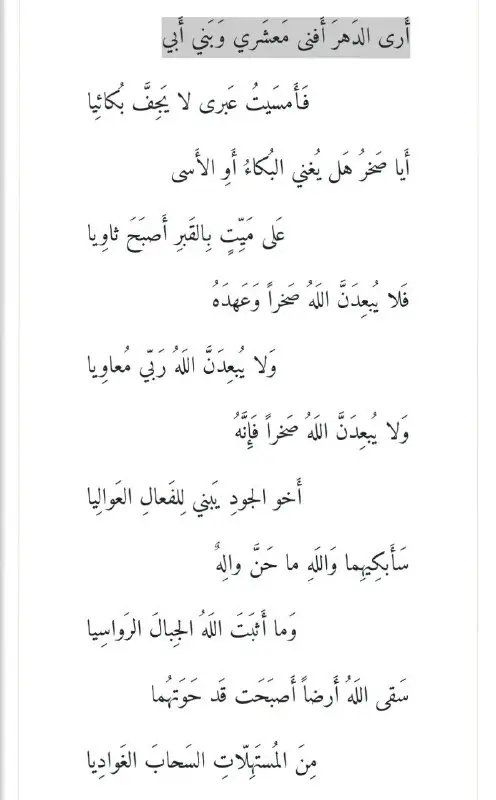 أَرى الدَهرَ أَفنى مَعشَري وَبَني أَبي
فَأَمسَيتُ عَبرى لا يَجِفَّ بُكائِيا
أَيا صَخرُ هَل يُغني البُكاءُ أَوِ الأَسى
عَلى مَيِّتٍ بِالقَبرِ أَصبَحَ ثاوِيا
فَلا يُبعِدَنَّ اللَهُ صَخراً وَعَهدَهُ
وَلا يُبعِدَنَّ اللَهُ رَبّي مُعاوِيا
وَلا يُبعِدَنَّ اللَهُ صَخراً فَإِنَّهُ
أَخو الجودِ يَبني لِلفَعالِ العَوالِيا
سَأَبكيهِما وَاللَهِ ما حَنَّ والِهٌ
وَما أَثبَتَ اللَهُ الجِبالَ الرَواسِيا
سَقى اللَهُ أَرضاً أَصبَحَت قَد حَوَتهُما
مِنَ المُستَهِلّاتِ السَحابَ الغَوادِيا